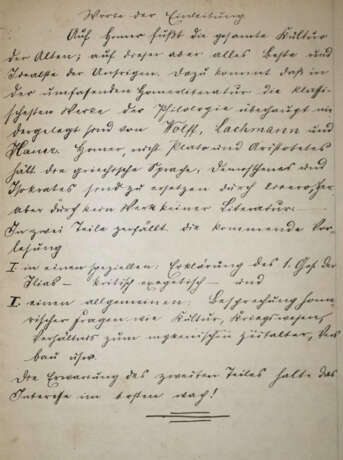 Worte der Einleitung
Auf Homer fußt die gesamte Kultur
der Alten; auf dieser aber alles Beste und
Idealste der Unsrigen. Dazu kommt daß in
der umfassenden Homerliteratur die klassi-
schesten Werke der Philologie überhaupt nie
dergelegt sind von Wolff, Lachmann und
Homer, nicht Plato und Aristoteles
hält die griechische Sprache, Demosthenes und
Isokrates sind zu ersetzen durch
aber durch kein Werk keiner Literatur.
In zwei Teile zerfällt die kommende Vor-
lesung
I in einen speziellen: Erklärung des 1. Ges. der
Ilias – kritisch-exegetisch – und
I. einen allgemeinen: Besprechung home-
rischer Fragen wie Kultur, Kriegswesen,
Verhältnis zum mykenischen Zeitalter, Vers
bau usw.
Die Erwartung des zweiten Teiles halte das
Interesse im besten wach!